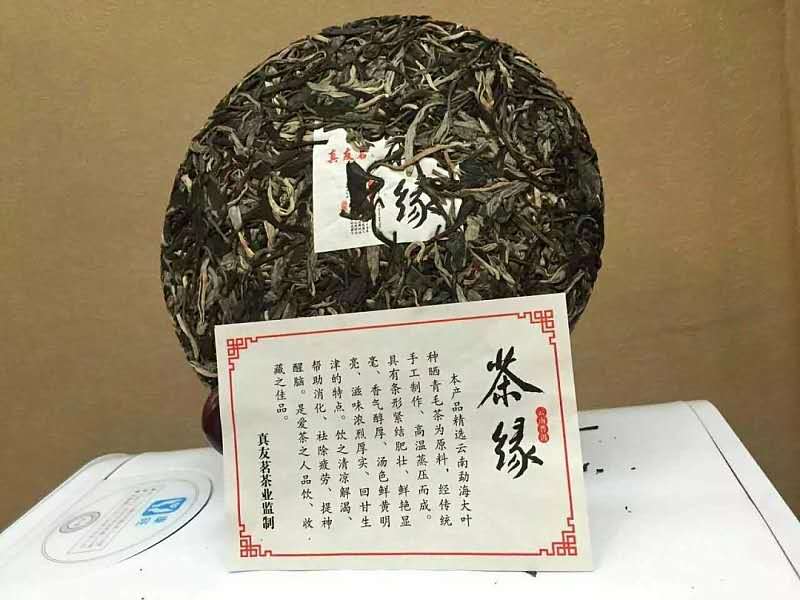 真友茗
缘
茶缘
云南普洱
本产品精选云南勐海大叶
种晒青毛茶为原料，经传统
手工制作、高温蒸压而成。
具有条形紧结肥壮、鲜艳显
毫、香气醇厚、汤色鲜黄明
亮、滋味浓烈厚实、回甘生
津的特点。饮之清凉解渴、
帮助消化、祛除疲劳、提神
醒脑。是爱茶之人品饮、收
藏之佳品。
真友茗茶业监制